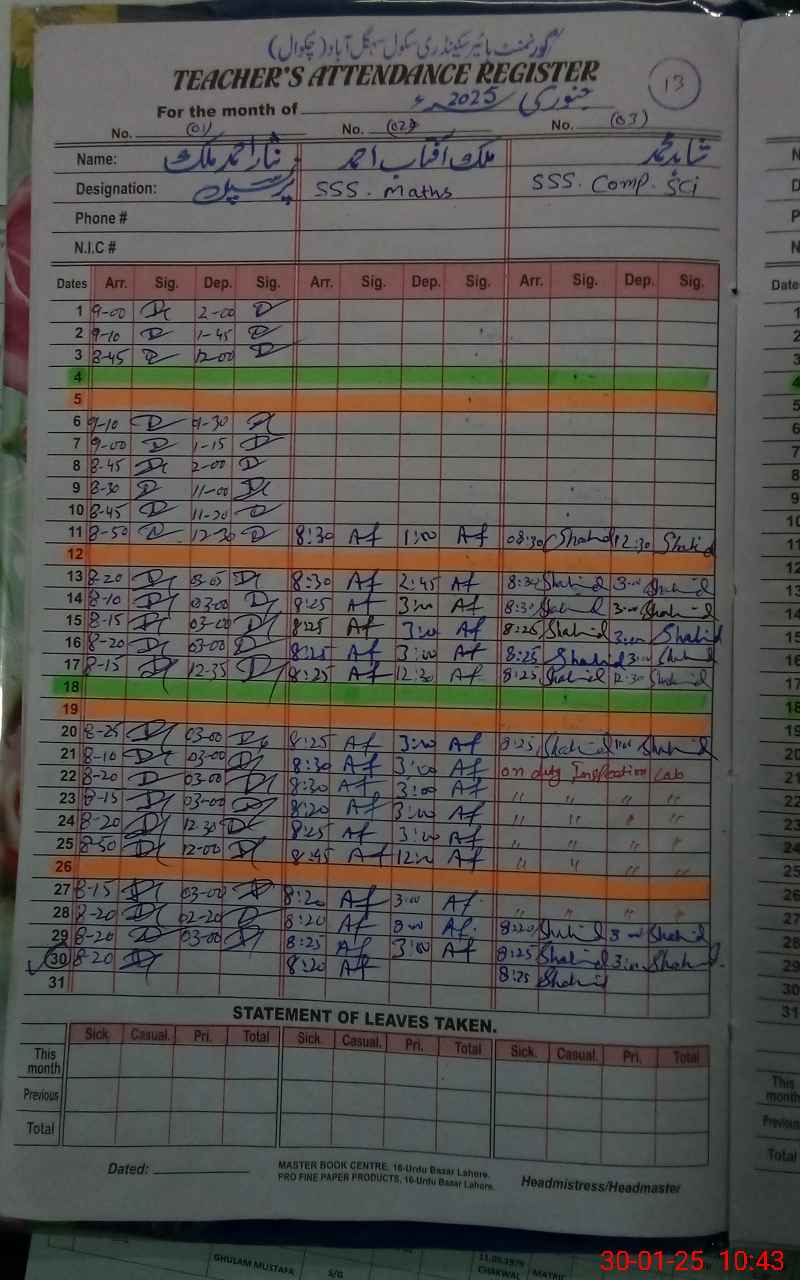 گورنمنٹ ہائیر سیکنڈری سکول سہگل آباد (چکوال)
TEACHER'S ATTENDANCE REGISTER
13
For the month of جنوری 2025ء
No. (01) No. (02) No. (03)
Name: نثار احمد ملک ملک آفتاب احمد شاہد محمد
Designation: پرنسپل SSS. Maths SSS. Comp. Sci
Phone #
N.I.C #
Dates Arr. Sig. Dep. Sig. Arr. Sig. Dep. Sig. Arr. Sig. Dep. Sig.
1 9-00 2-00
2 9-10 1-45
3 8-45 12-00
4
5
6 9-10
7 9-00 1-15
8 8-45 2-00
9 8-30 11-00
10 8-45 11-20
11 8-50 12-30 8:30 Af 1:00 Af 08:30 Shahid 12:30 Shahid
12
13 8-20 03-05 8:30 Af 2:45 Af 8:30 Shahid 3:00 Shahid
14 8-10 03-00 8:25 Af 3:00 Af 8:30 Shahid 3:00 Shahid
15 8-15 03-00 8:25 Af 3:00 Af 8:25 Shahid 3:00 Shahid
16 8-20 03-00 8:25 Af 3:00 Af 8:25 Shahid 3:00 Shahid
17 8-15 12-35 8:25 Af 12:30 Af 8:25 Shahid 12:30 Shahid
18
19
20 8-25 03-00 8:25 Af 3:00 Af 8:25 Shahid Shahid
21 8-10 03-00 8:30 Af 3:00 Af on duty Inspection Lab
22 8-20 03-00 8:30 Af 3:00 Af " " " "
23 8-15 03-00 8:20 Af 3:00 Af " " " "
24 8-20 12-30 8:25 Af 3:00 Af " " " "
25 8-50 12-00 8:45 Af 12:00 Af " " " "
26
27 8-15 03-00 8:20 Af 3:00 Af " " " "
28 8-20 02-20 8:20 Af 3:00 Af 8:20 Shahid 3:00 Shahid
29 8-20 03-00 8:25 Af 3:00 Af 8:25 Shahid 3:00 Shahid
30 8-20 8:20 Af 8:25 Shahid
31
STATEMENT OF LEAVES TAKEN.
Sick. Casual. Pri. Total Sick. Casual. Pri. Total Sick. Casual. Pri. Total
This month
Previous
Total
Dated:
MASTER BOOK CENTRE, 16-Urdu Bazar Lahore.
PRO FINE PAPER PRODUCTS, 16-Urdu Bazar Lahore.
Headmistress/Headmaster
GHULAM MUSTAFA S/G 11.05.1979 CHAKWAL MATRIC
30-01-25 10:43